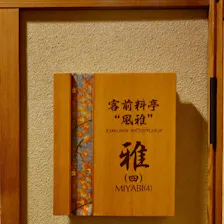 客前料亭
“風雅”
雅
(四)
MIYABI(4)